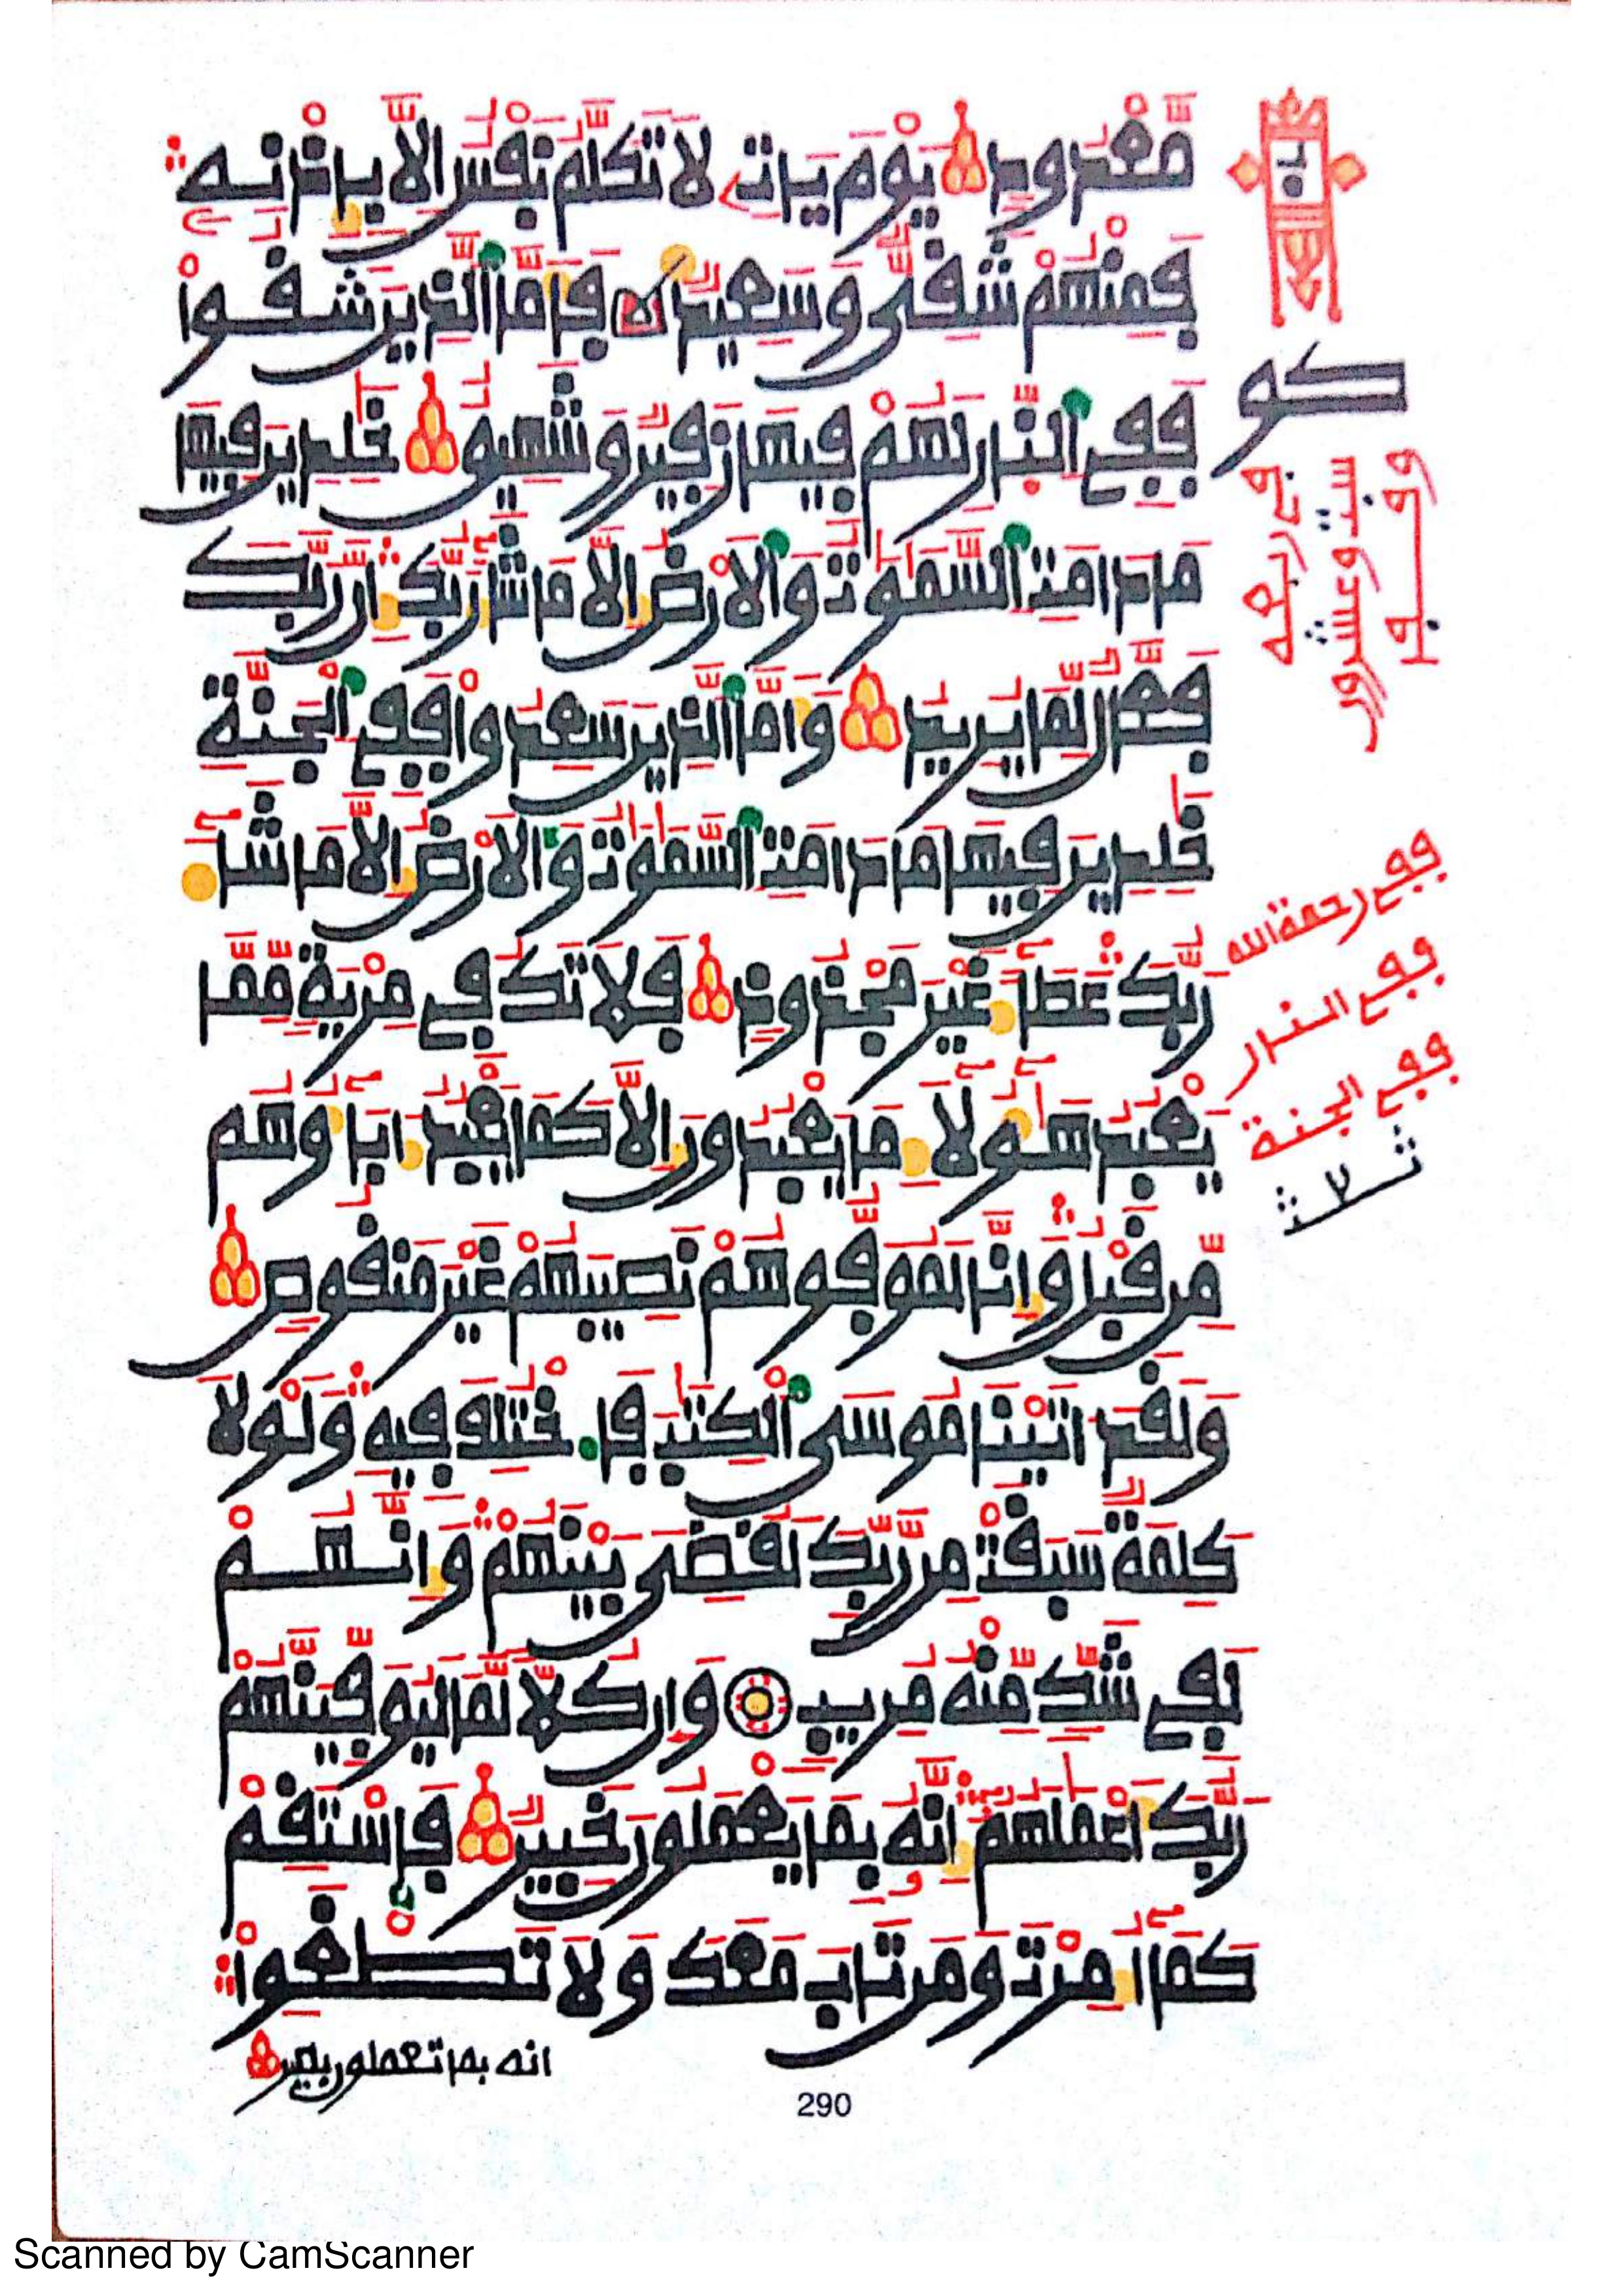 مَّعْدُودٍ يَوْمَ يَاتِ لَا تَكَلَّمُ نَفْسٌ اِلَّا بِإِذْنِهِ
فَمِنْهُمْ شَقِيٌّ وَسَعِيدٌ فَأَمَّا اَلذِينَ شَقُواْ
فَفِي اِلنّارِ لَهُمْ فِيهَا زَفِيرٌ وَشَهِيقٌ خَٰلِدِينَ فِيهَا
مَا دَامَتِ اِلسَّمَٰوَٰتُ وَالَارْضُ إِلَّا مَا شَآءَ رَبُّكَ إِنَّ رَبَّكَ
فَعَّالٌ لِّمَا يُرِيدُ وَأَمَّا اَلذِينَ سَعِدُواْ فَفِي اِلْجَنَّةِ
خَٰلِدِينَ فِيهَا مَا دَامَتِ اِلسَّمَٰوَٰتُ وَالَارْضُ إِلَّا مَا شَآءَ
رَبُّكَ عَطَآءً غَيْرَ مَجْذُوذٍ فَلَا تَكُ فِي مِرْيَةٍ مِّمَّا
يَعْبُدُ هَٰٓؤُلَآءِ مَا يَعْبُدُونَ إِلَّا كَمَا يَعْبُدُ ءَابَآؤُهُم
مِّن قَبْلُ وَإِنَّا لَمُوَفُّوهُمْ نَصِيبَهُمْ غَيْرَ مَنقُوصٍ
وَلَقَدَ اٰتَيْنَا مُوسَى اَلْكِتَٰبَ فَاخْتُلِفَ فِيهِ وَلَوْلَا
كَلِمَةٌ سَبَقَتْ مِن رَّبِّكَ لَقُضِيَ بَيْنَهُمْ وَإِنَّهُمْ
لَفِي شَكٍّ مِّنْهُ مُرِيبٍ وَإِن كُلًّا لَّمَا لَيُوَفِّيَنَّهُمْ
رَبُّكَ أَعْمَٰلَهُمُ إِنَّهُ بِمَا يَعْمَلُونَ خَبِيرٌ فَاسْتَقِمْ
كَمَآ أُمِرْتَ وَمَن تَابَ مَعَكَ وَلَا تَطْغَوِاْ
انه بما تعملون بصير
290
كو
ففي رحمة الله
ففي النار
ففي الجنة
Scanned by CamScanner